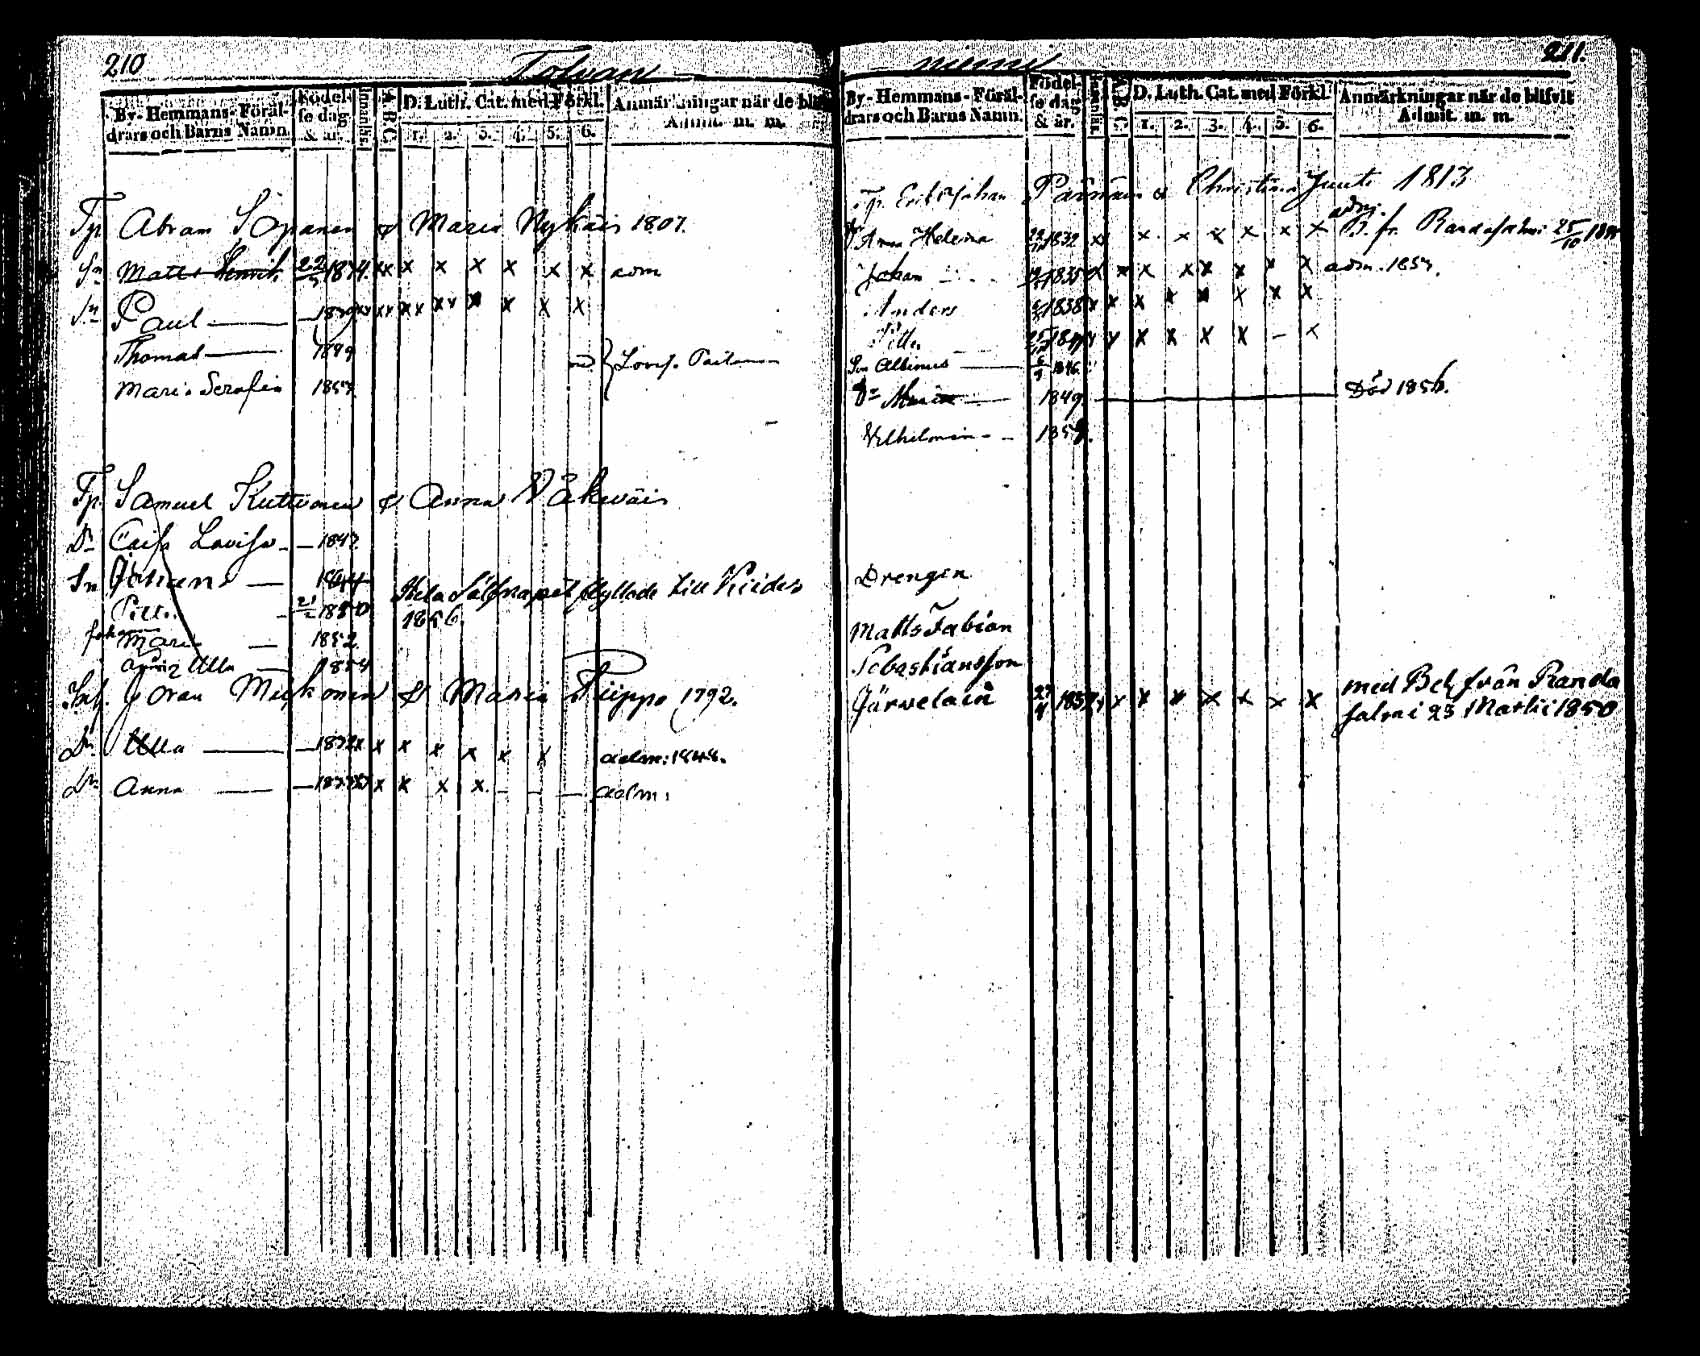 210
Tolvan
By- Hemmans- Föräl-
drars och Barns Namn.
Födel-
se dag
& år.
Innanläs.
A.B.C.
D. Luth. Cat. med Förkl.
1. 2. 3. 4. 5. 6.
Anmärkningar när de blif
Admit. m. m.
Tp. Abram Sopanen & Maria Nykäin 1807.
Sn Matts Henrik 22 1834. xx x x x x x x adm
Sn Paul
Thomas 1849
Maria Serafia 1857
Tp. Samuel Kuttvonen & Anna Väkeväin
Dr Caisa Lovisa 1847
Sn 1844
Petter 21/2 1850
Hela Sälskapet flyttade till Kiides
1856.
Johan
Maria 1852.
Ulla 1854
Inh. Göran Miikonen & Maria Piippo 1792.
Dr Ulla 1832 x x x x x x x adm: 1848.
Dr Anna x x x x adm:
211.
niemi
By- Hemmans- Föräl-
drars och Barns Namn.
Födel-
se dag
& år.
Innanläs.
A.B.C.
D. Luth. Cat. med Förkl.
1. 2. 3. 4. 5. 6.
Anmärkningar när de blifvit
Admit. m. m.
Tp. Erik Johan Parnanen & Christina Juuti 1813
Dr Anna Helena 1832 x x x x x x adm. B. fr. Randasalmi 25/10
Johan 1835 x x x x x x x x adm. 1857.
Anders 1838 x x x x x x x x
Petter 25 x x x x x – x
Sn Albinus 1846
Dr Maria 1849 Död 1856.
Vilhelmin
Drengen
Matts Fabian
Sebastiansson
Järvelain x x x x x x x med Bet från Randa
salmi 23 Martii 1850